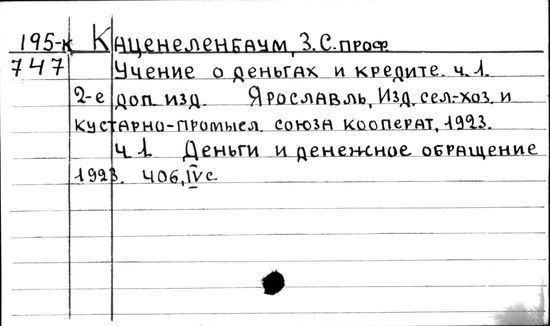 195-к КАЦЕНЕЛЕНБАУМ, З.С. ПРОФ.
747 УЧЕНИЕ О ДЕНЬГАХ И КРЕДИТЕ. Ч.1.
2-е ДОП. ИЗД. ЯРОСЛАВЛЬ, ИЗД. СЕЛ-ХОЗ. И
КУСТАРНО-ПРОМЫСЛ. СОЮЗА КООПЕРАТ, 1923.
Ч.1 ДЕНЬГИ И ДЕНЕЖНОЕ ОБРАЩЕНИЕ
1923. 406, IV с.